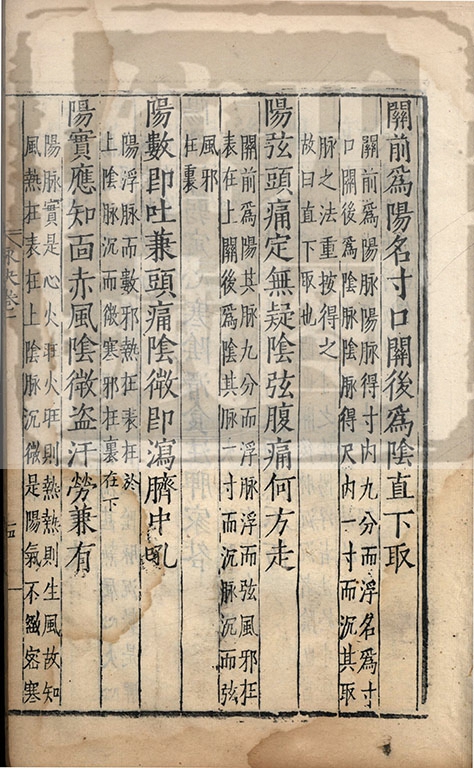 關前爲陽名寸口關後爲陰直下取
關前爲陽脉陽脉得寸内九分而浮名爲寸
口關後爲陰脉陰脉得尺内一寸而沉其取
脉之法重按得之
故曰直下取也
陽弦頭痛定無疑陰弦腹痛何方走
關前爲陽其脉九分而浮脉浮而弦風邪在
表在上關後爲陰其脉一寸而沉脉沉而弦
風邪
在裏
陽數即吐兼頭痛陰微即瀉臍中吼
陽浮脉而數邪熱在表在於
上陰脉沉而微寒邪在裏在下
陽實應知面赤風陰微盗汗勞兼有
陽脉實是心火旺火旺則熱熱則生風故知
風熱在表在上陰脉沉微是陽氣不緻密寒